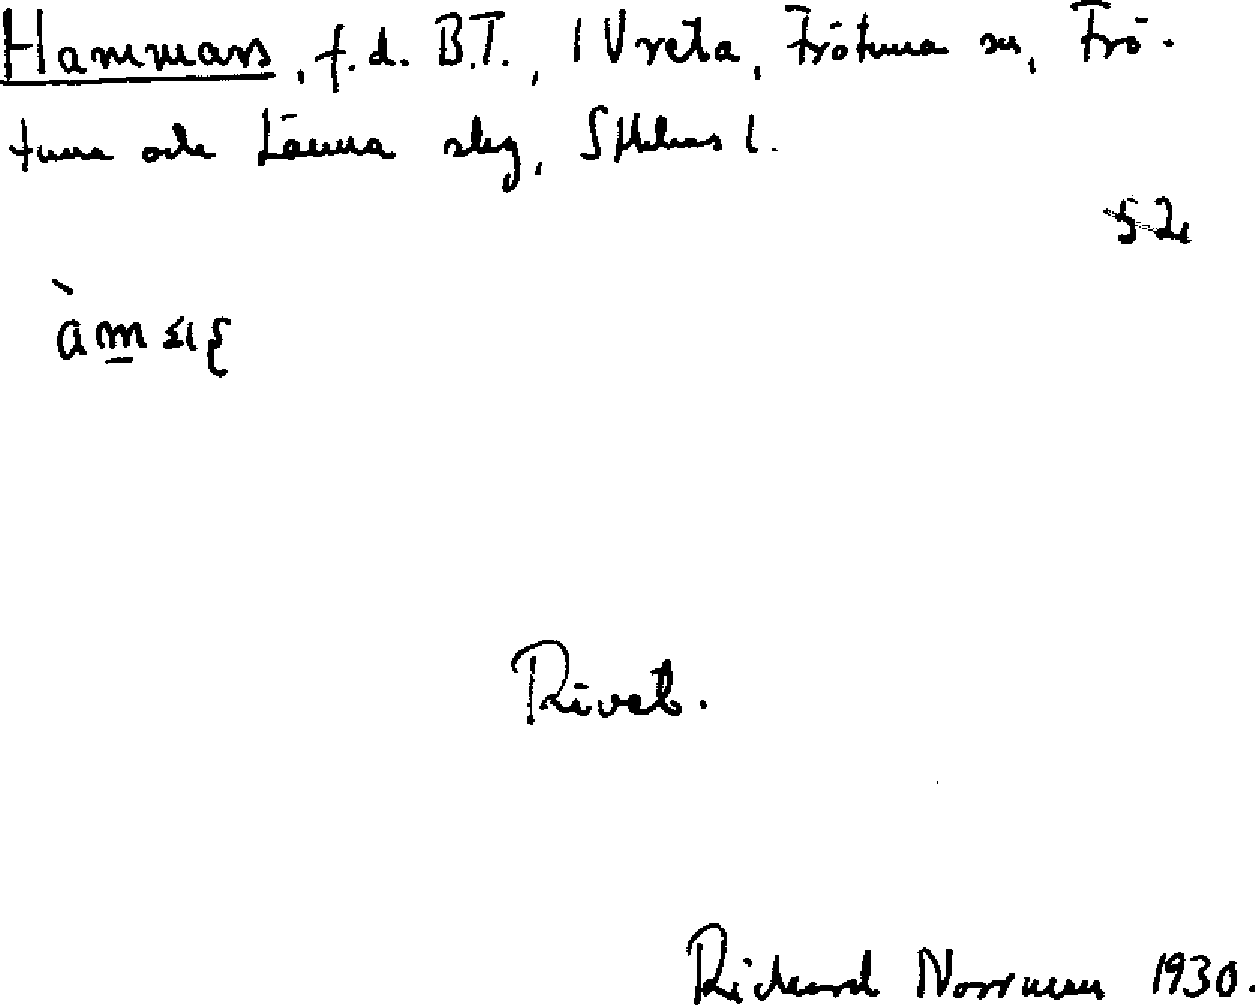 Hammars, f.d. B.T., 1 Vreta, Frötuna sn, Frö-
tuna och Länna slg, Sthlms l.
52
Rivet.
Richard Norrman 1930.